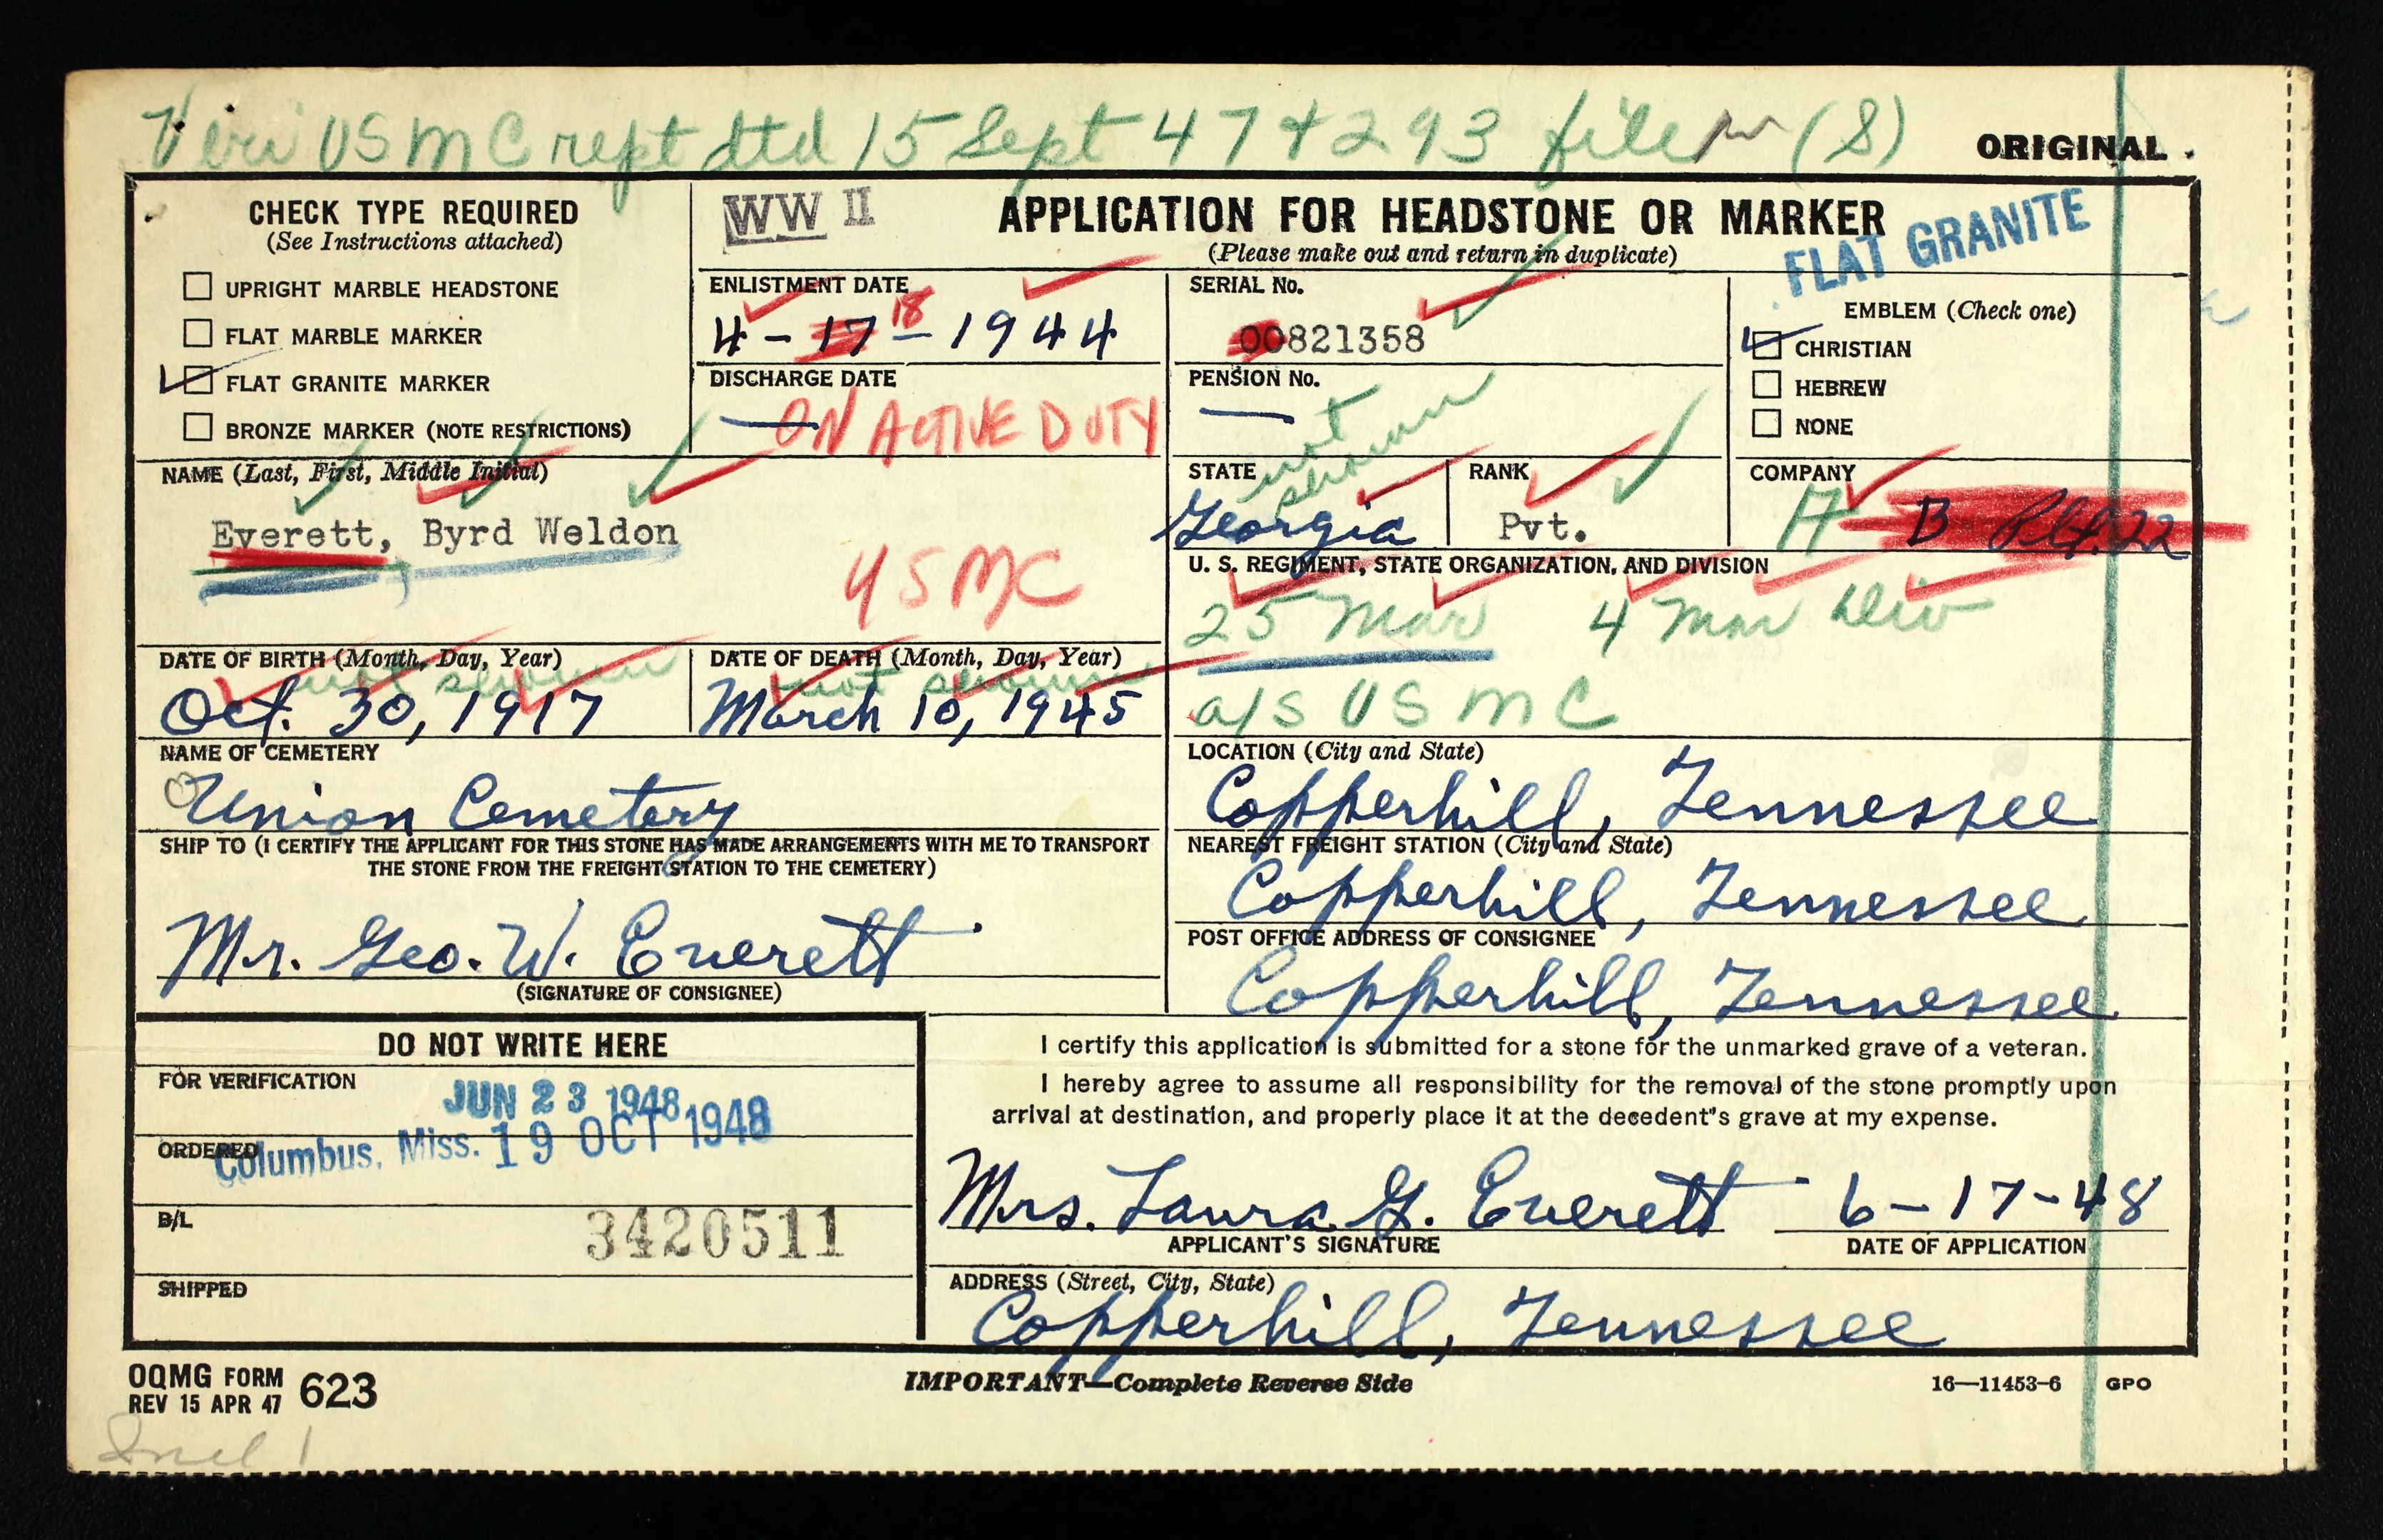 Veri USMC rept dtd 15 Sept 47 + 293 file (S)
ORIGINAL
CHECK TYPE REQUIRED
(See Instructions attached)
UPRIGHT MARBLE HEADSTONE
FLAT MARBLE MARKER
FLAT GRANITE MARKER
BRONZE MARKER (NOTE RESTRICTIONS)
WW II
APPLICATION FOR HEADSTONE OR MARKER
(Please make out and return in duplicate)
FLAT GRANITE
ENLISTMENT DATE
4-17 18-1944
SERIAL No.
00821358
EMBLEM (Check one)
CHRISTIAN
HEBREW
NONE
DISCHARGE DATE
— ON ACTIVE DUTY
PENSION No.
—
NAME (Last, First, Middle Initial)
Everett, Byrd Weldon
USMC
STATE
not shown
Georgia
RANK
Pvt.
COMPANY
A B Plt. 22
U. S. REGIMENT, STATE ORGANIZATION, AND DIVISION
25 Mar 4 Mar Div
a/s USMC
DATE OF BIRTH (Month, Day, Year)
not shown
Oct. 30, 1917
DATE OF DEATH (Month, Day, Year)
not shown
March 10, 1945
NAME OF CEMETERY
Union Cemetery
LOCATION (City and State)
Copperhill, Tennessee
SHIP TO (I CERTIFY THE APPLICANT FOR THIS STONE HAS MADE ARRANGEMENTS WITH ME TO TRANSPORT
THE STONE FROM THE FREIGHT STATION TO THE CEMETERY)
Mr. Geo. W. Everett
(SIGNATURE OF CONSIGNEE)
NEAREST FREIGHT STATION (City and State)
Copperhill, Tennessee
POST OFFICE ADDRESS OF CONSIGNEE
Copperhill, Tennessee
DO NOT WRITE HERE
FOR VERIFICATION
JUN 23 1948
ORDERED
Columbus, Miss. 19 OCT 1948
B/L
3420511
SHIPPED
I certify this application is submitted for a stone for the unmarked grave of a veteran.
I hereby agree to assume all responsibility for the removal of the stone promptly upon
arrival at destination, and properly place it at the decedent's grave at my expense.
Mrs. Laura G. Everett 6-17-48
APPLICANT'S SIGNATURE
DATE OF APPLICATION
ADDRESS (Street, City, State)
Copperhill, Tennessee
OQMG FORM 623
REV 15 APR 47
IMPORTANT—Complete Reverse Side
16—11453-6 GPO